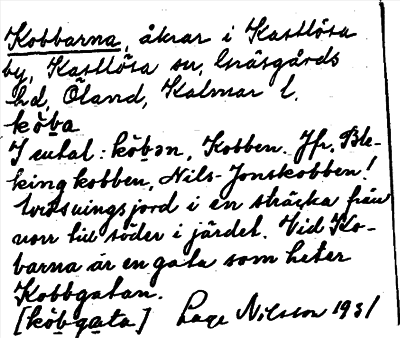 Kobbarna, åkrar i Kastlösa
by, Kastlösa sn, Gräsgårds
hd, Öland, Kalmar l.
köba
I sutal: köbən, Kobben. Jfr. Ble-
kingkobben, Nils-Jonskobben!
jord i en sträcka från
norr till söder i järdet. Vid Ko-
barna är en gata som heter
Kobbgatan.
[köbgata] Lage Nilsson 1931